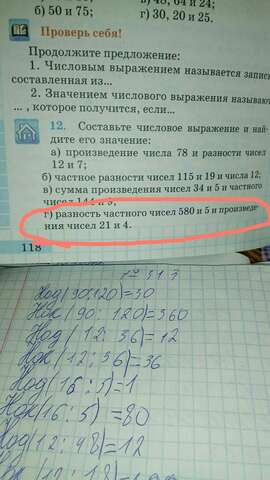 б) 50 и 75;
г) 30, 20 и 25.
Проверь себя!
Продолжите предложение:
1. Числовым выражением называется запись
составленная из...
2. Значением числового выражения называют
... , которое получится, если...
12. Составьте числовое выражение и най-
дите его значение:
а) произведение числа 78 и разности чисел
12 и 7;
б) частное разности чисел 115 и 19 и числа 12;
в) сумма произведения чисел 34 и 5 и частного
чисел 144 и
г) разность частного чисел 580 и 5 и произведе-
ния чисел 21 и 4.
118
Ход(90:120)=30
Нок(90:120)=360
Ход(12:36)=12
Нок(12:36)=36
Ход(16:5)=1
Нок(16:5)=80
Ход(12:48)=12